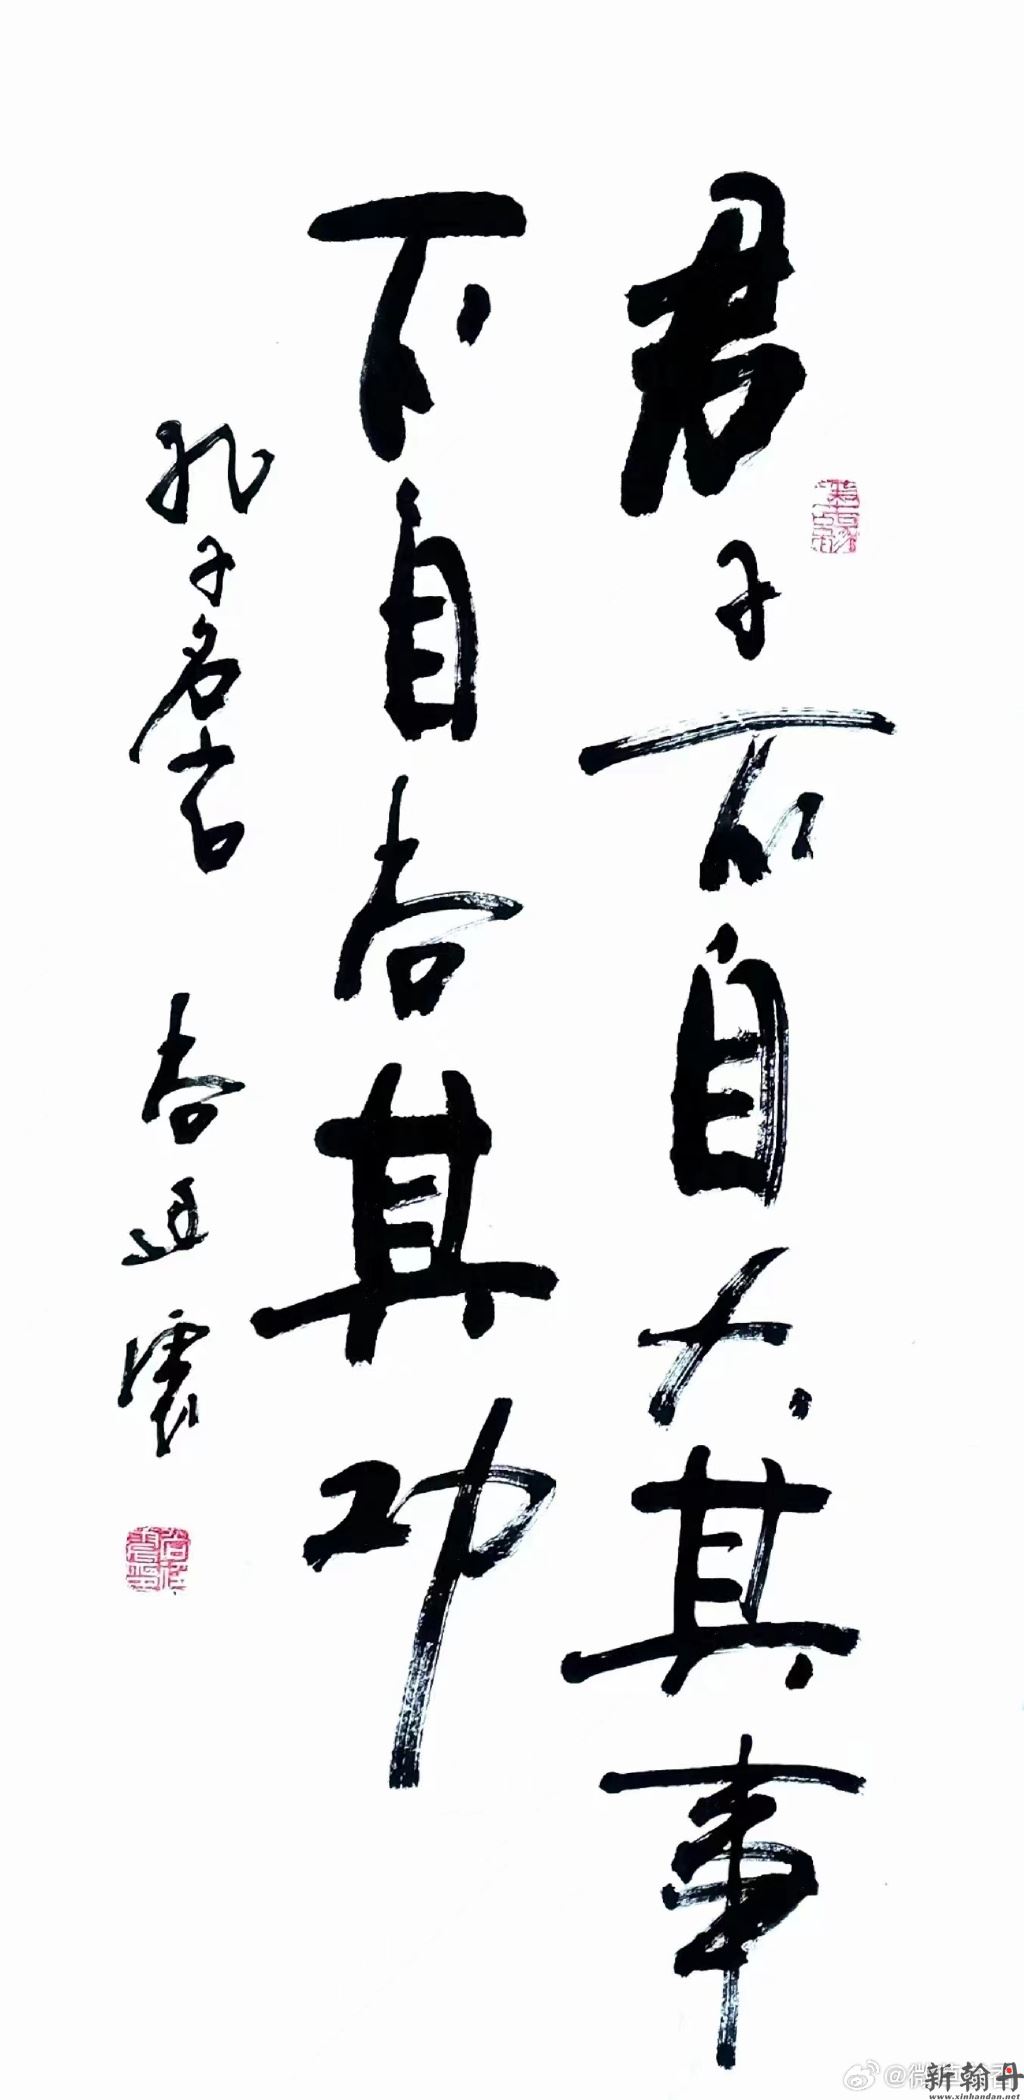 君子不自大其事
不自尚其功
孔子名言 尚亚震
@微
新翰丹
www.xinhandan.net